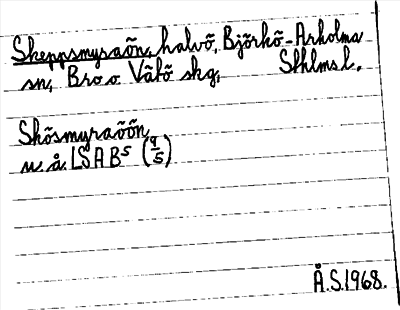 Skeppsmyraön, halvö, Björkö-Arholma
sn, Bro o Vätö skg, Sthlms l.
Skösmyraöön
u å. LSA B5 (9/5)
Å.S. 1968.